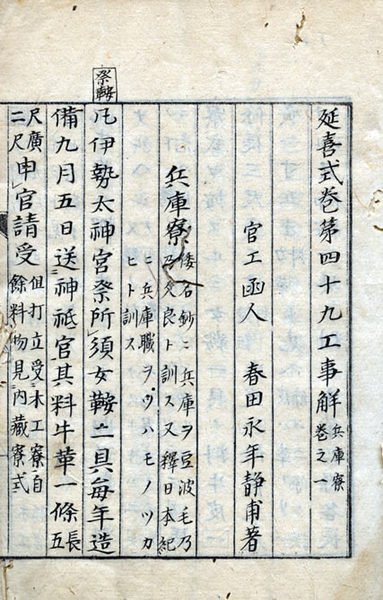 延喜式巻第四十九工事解 兵庫寮 巻之一
官工函人 春田永年静甫著
兵庫寮 倭名鈔ニ兵庫ヲ豆波毛乃
乃久良ト訓又釋日本紀
ニ兵庫職ヲツハモノツカ
ヒト訓ス
祭鞍
凡伊勢太神宮祭所須女鞍二具毎年造
備九月五日送神祇官其料牛革一條 長五
尺廣二尺 申官請受 但打立受木工寮自
餘料物見内藏寮式